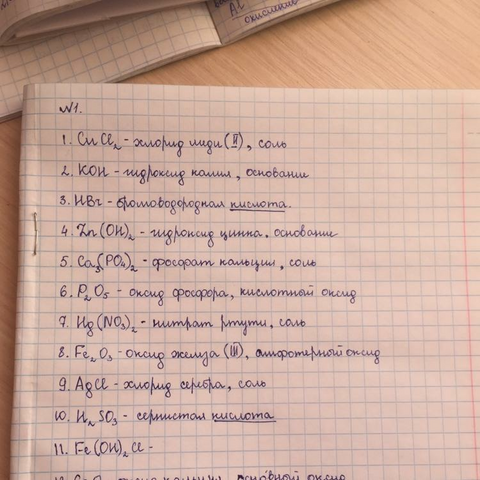 Al
окисление
№1.
1. CuCl₂ - хлорид меди (II), соль
2. KOH - гидроксид калия, основание
3. HBr - бромоводородная кислота.
4. Zn(OH)₂ - гидроксид цинка. основание
5. Ca₃(PO₄)₂ - фосфат кальция, соль
6. P₂O₅ - оксид фосфора, кислотный оксид
7. Hg(NO₃)₂ - нитрат ртути, соль
8. Fe₂O₃ - оксид железа (III), амфотерный оксид
9. AgCl - хлорид серебра, соль
10. H₂SO₃ - сернистая кислота
11. Fe(OH)₂Cl -
12. CaO - оксид кальция, основный оксид